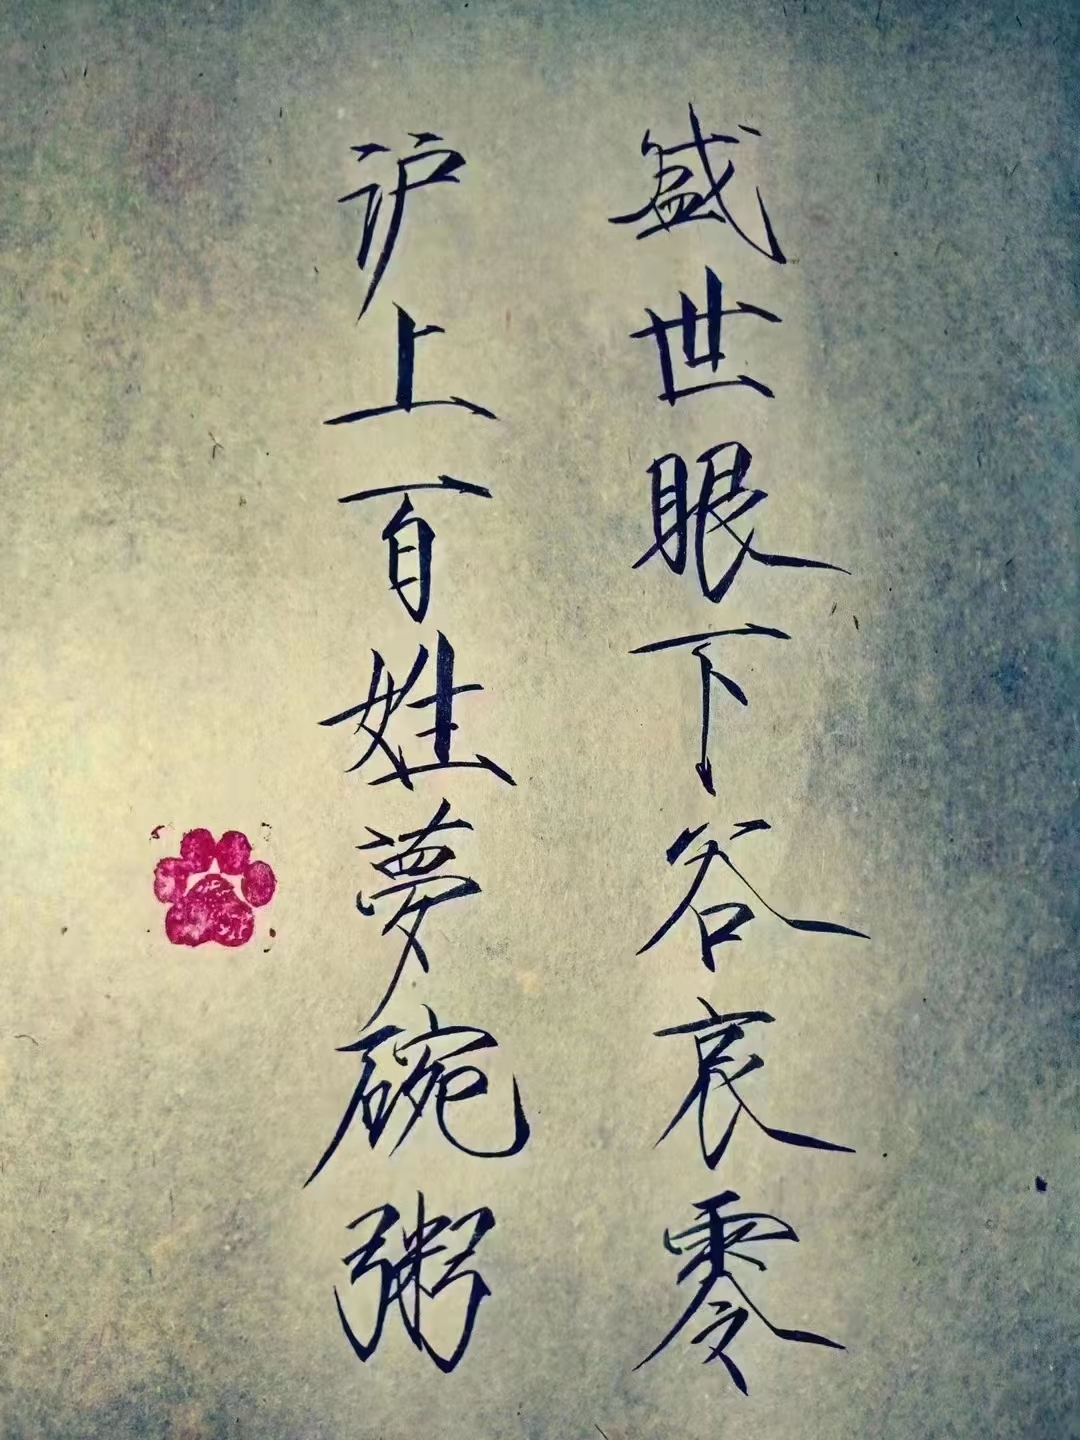 盛世眼下谷哀零
沪上百姓夢碗粥